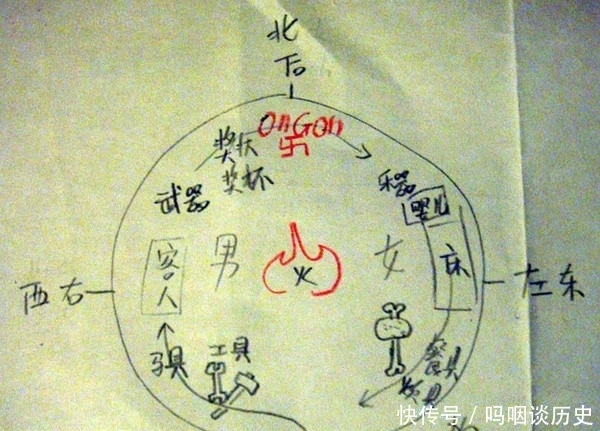 北
后
ONGON
卐
奖状
奖杯
武器
乐器
婴儿
客人
男
火
女
床
西右
左东
马具
工具
餐具
炊具
快传号/呜咽谈历史